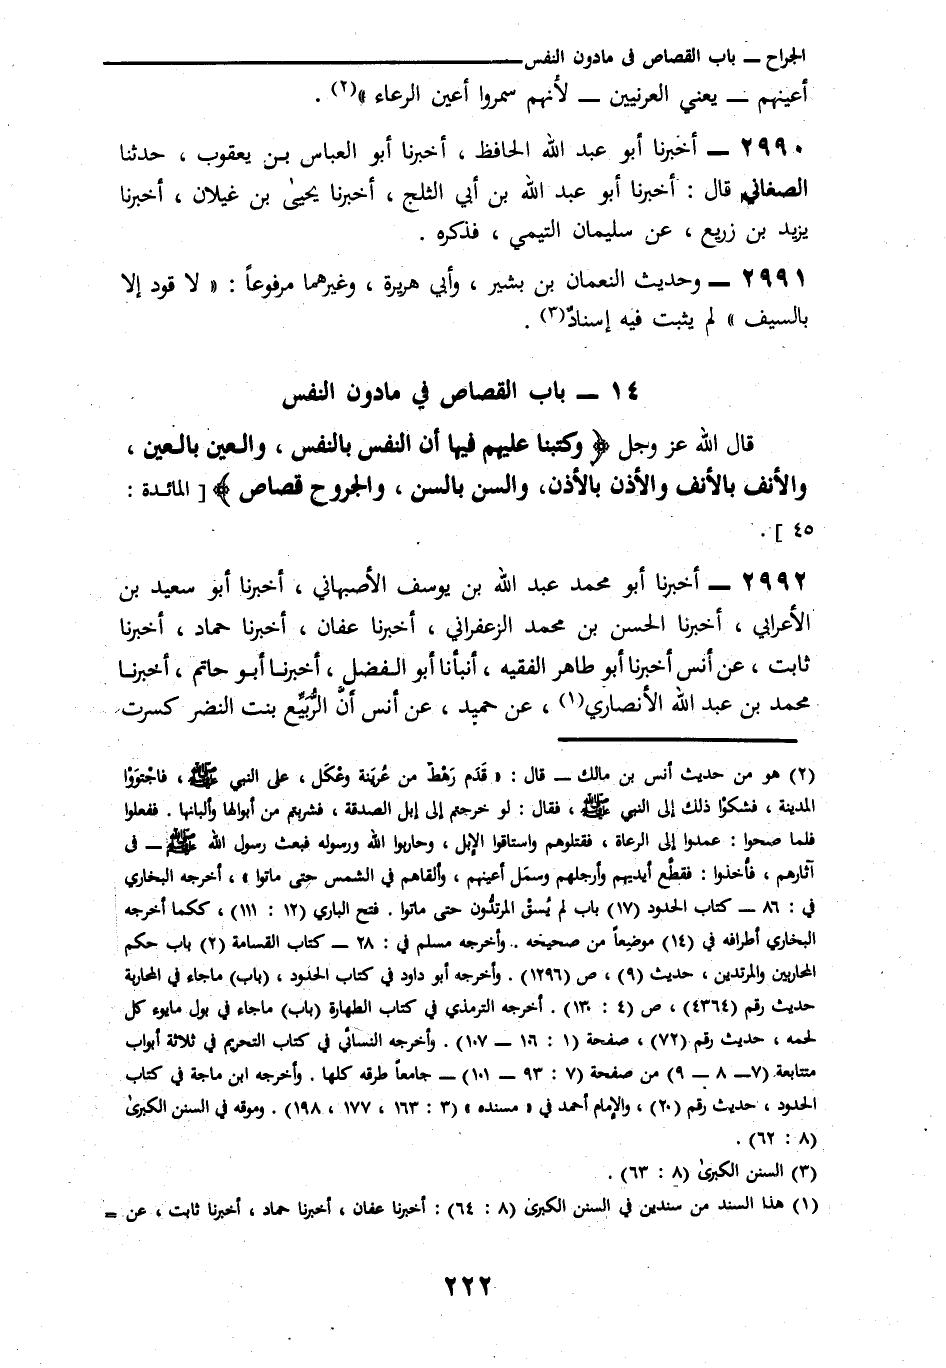 الجراح — باب القصاص فى مادون النفس
أعينهم — يعني العرنيين — لأنهم سمروا أعين الرعاء »(٢) .
٢٩٩٠ — أخبرنا أبو عبد الله الحافظ ، أخبرنا أبو العباس بن يعقوب ، حدثنا
الصغاني قال : أخبرنا أبو عبد الله بن أبي الثلج ، أخبرنا يحيىٰ بن غيلان ، أخبرنا
يزيد بن زريع ، عن سليمان التيمي ، فذكره .
٢٩٩١ — وحديث النعمان بن بشير ، وأبي هريرة ، وغيرهما مرفوعاً : « لا قود إلا
بالسيف » لم يثبت فيه إسنادٌ(٣) .
١٤ — باب القصاص في مادون النفس
قال الله عز وجل ﴿ وكتبنا عليهم فيها أن النفس بالنفس ، والعين بالعين ،
والأنف بالأنف والأذن بالأذن، والسن بالسن ، والجروح قصاص ﴾ [ المائدة :
٤٥ ] .
٢٩٩٢ — أخبرنا أبو محمد عبد الله بن يوسف الأصبهاني ، أخبرنا أبو سعيد بن
الأعرابي ، أخبرنا الحسن بن محمد الزعفراني ، أخبرنا عفان ، أخبرنا حماد ، أخبرنا
ثابت ، عن أنس أخبرنا أبو طاهر الفقيه ، أنبأنا أبو الفضل ، أخبرنا أبو حاتم ، أخبرنا
محمد بن عبد الله الأنصاري(١) ، عن حميد ، عن أنس أنَّ الرُّبَيِّع بنت النضر كسرت
(٢) هو من حديث أنس بن مالك — قال : « قَدَم رَهْطٌ من عُرَينة وعُكَل ، على النبي ﷺ ، فاجْتَوَوْا
المدينة ، فشكوْا ذلك إلى النبي ﷺ ، فقال : لو خرجتم إلى إبل الصدقة ، فشربتم من أبوالها وألبانها . ففعلوا
فلما صحوا : عمدوا إلى الرعاة ، فقتلوهم واستاقوا الإبل ، وحاربوا الله ورسوله فبعث رسول الله ﷺ — فى
آثارهم ، فأخذوا : فقطَّع أيديهم وأرجلهم وسمَل أعينهم ، وألقاهم في الشمس حتى ماتوا » ، أخرجه البخاري
في : ٨٦ — كتاب الحدود (١٧) باب لم يُسقْ المرتدُّون حتى ماتوا . فتح الباري (١٢ : ١١١) ، ككما أخرجه
البخاري أطرافه في (١٤) موضعاً من صحيحه .. وأخرجه مسلم في : ٢٨ — كتاب القسامة (٢) باب حكم
المحاربين والمرتدين ، حديث (٩) ، ص (١٢٩٦) . وأخرجه أبو داود في كتاب الحدود ، (باب) ماجاء في المحاربة
حديث رقم (٤٣٦٤) ، ص (٤ : ١٣٠) . أخرجه الترمذي في كتاب الطهارة (باب) ماجاء في بول مايوء كل
لحمه ، حديث رقم (٧٢) ، صفحة (١ : ١٠٦ — ١٠٧) . وأخرجه النسائي في كتاب التحريم في ثلاثة أبواب
متتابعة (٧— ٨ — ٩) من صفحة (٧ : ٩٣ — ١٠١) — جامعاً طرقه كلها . وأخرجه ابن ماجة في كتاب
الحدود ، حديث رقم (٢٠) ، والإمام أحمد في « مسنده » (٣ : ١٦٣ ، ١٧٧ ، ١٩٨) . وموقه في السنن الكبرىٰ
(٨ : ٦٢) .
(٣) السنن الكبرىٰ (٨ : ٦٣) .
(١) هذا السند من سندين في السنن الكبرى (٨ : ٦٤) : أخبرنا عفان ، أخبرنا حماد ، أخبرنا ثابت ، عن =
٢٢٢